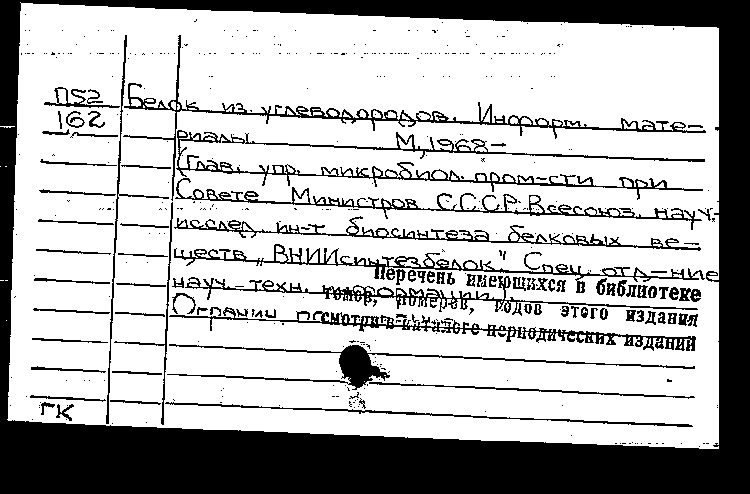 П52 Белок из углеводородов. Информ. мате-
162 риалы. М., 1968-
(Глав. упр. микробиол. пром-сти при
Совете Министров С.С.С.Р. Всесоюз. науч.-
исслед. ин-т биосинтеза белковых ве-
ществ „ВНИИсинтезбелок". Спец. отд-ние
науч. техн. информации).
Перечень имеющихся в библиотеке
томов, номеров, годов этого издания
смотри в каталоге периодических изданий
ГК